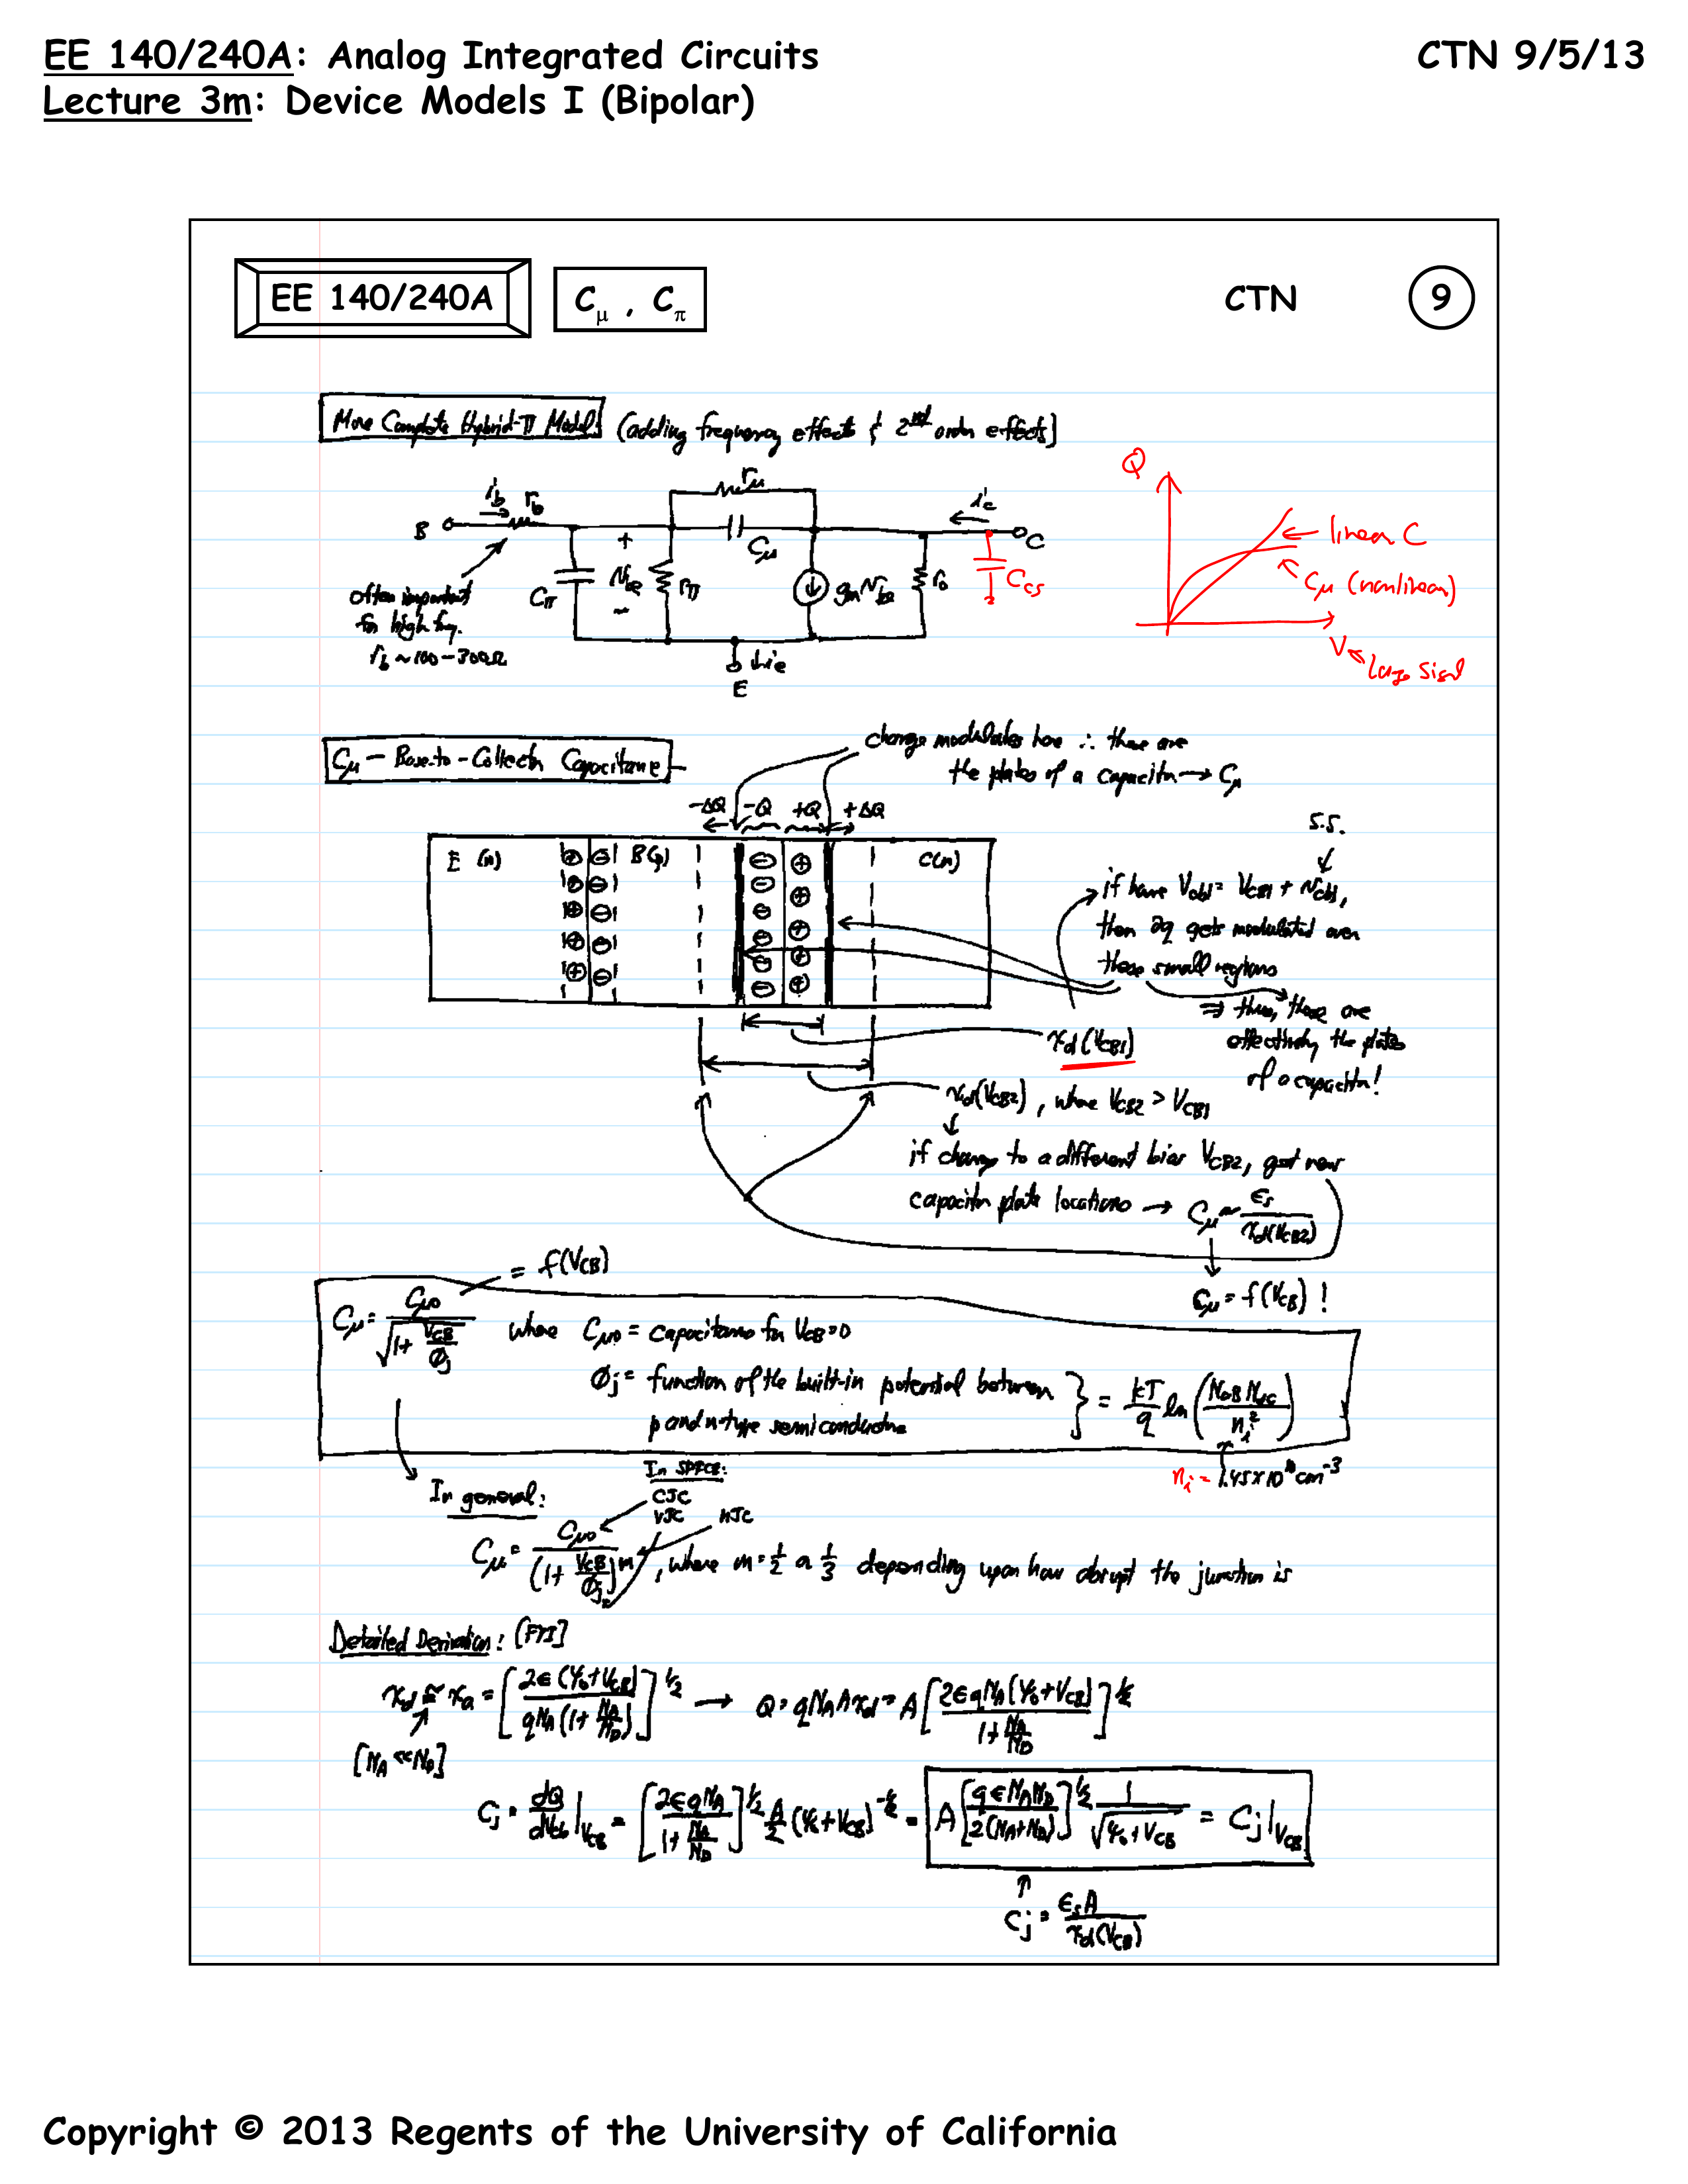 EE 140/240A: Analog Integrated Circuits CTN 9/5/13
Lecture 3m: Device Models I (Bipolar)
EE 140/240A Cμ , Cπ CTN 9
More Complete Hybrid-π Model: (adding frequency effects & 2nd order effects)
Q
rμ
ib rb
ic
B
C
linear C
+
Cμ
Cπ vbe rπ
gmvbe ro
Ccs
Cμ (nonlinear)
-
often important
for high freq.
rb ~ 100-300Ω
↓ie
E
V ← large signal
Cμ - Base-to-Collector Capacitance
charge modulates here ∴ these are
the plates of a capacitor → Cμ
-ΔQ -Q +Q +ΔQ
s.s.
E (n) B(p) C(n)
if have Vcb1 = VCB1 + vcb1,
then ∂q gets modulated over
these small regions
⇒ thus, these are
effectively the plates
of a capacitor!
xd(VCB1)
xd(VCB2), where VCB2 > VCB1
if change to a different bias VCB2, get new
capacitor plate locations → Cμ ~ εs / xd(VCB2)
Cμ = f(VCB) !
= f(VCB)
Cμ = Cμo / √(1 + VCB/Øj) where Cμo = capacitance for VCB=0
Øj = function of the built-in potential between
p and n-type semiconductors } = kT/q ln(NaB NdC / ni²)
ni = 1.45×10¹⁰ cm⁻³
In general:
In SPICE:
CJC
VJC MJC
Cμ = Cμo / (1 + VCB/Øj)^m , where m = 1/2 or 1/3 depending upon how abrupt the junction is
Detailed Derivation: [FYI]
xd ≅ xa = [2ε(ψo+VCB) / qNA(1+NA/ND)]^1/2 → Q = qNAAxd = A[2εqNA(ψo+VCB) / 1+NA/ND]^1/2
[NA << ND]
Cj = dQ/dVcb |VCB = [2εqNA / 1+NA/ND]^1/2 A/2 (ψo+VCB)^-1/2 = A[qεNAND / 2(NA+ND)]^1/2 1/√(ψo+VCB) = Cj|VCB
↑
Cj = εsA / xd(VCB)
Copyright © 2013 Regents of the University of California